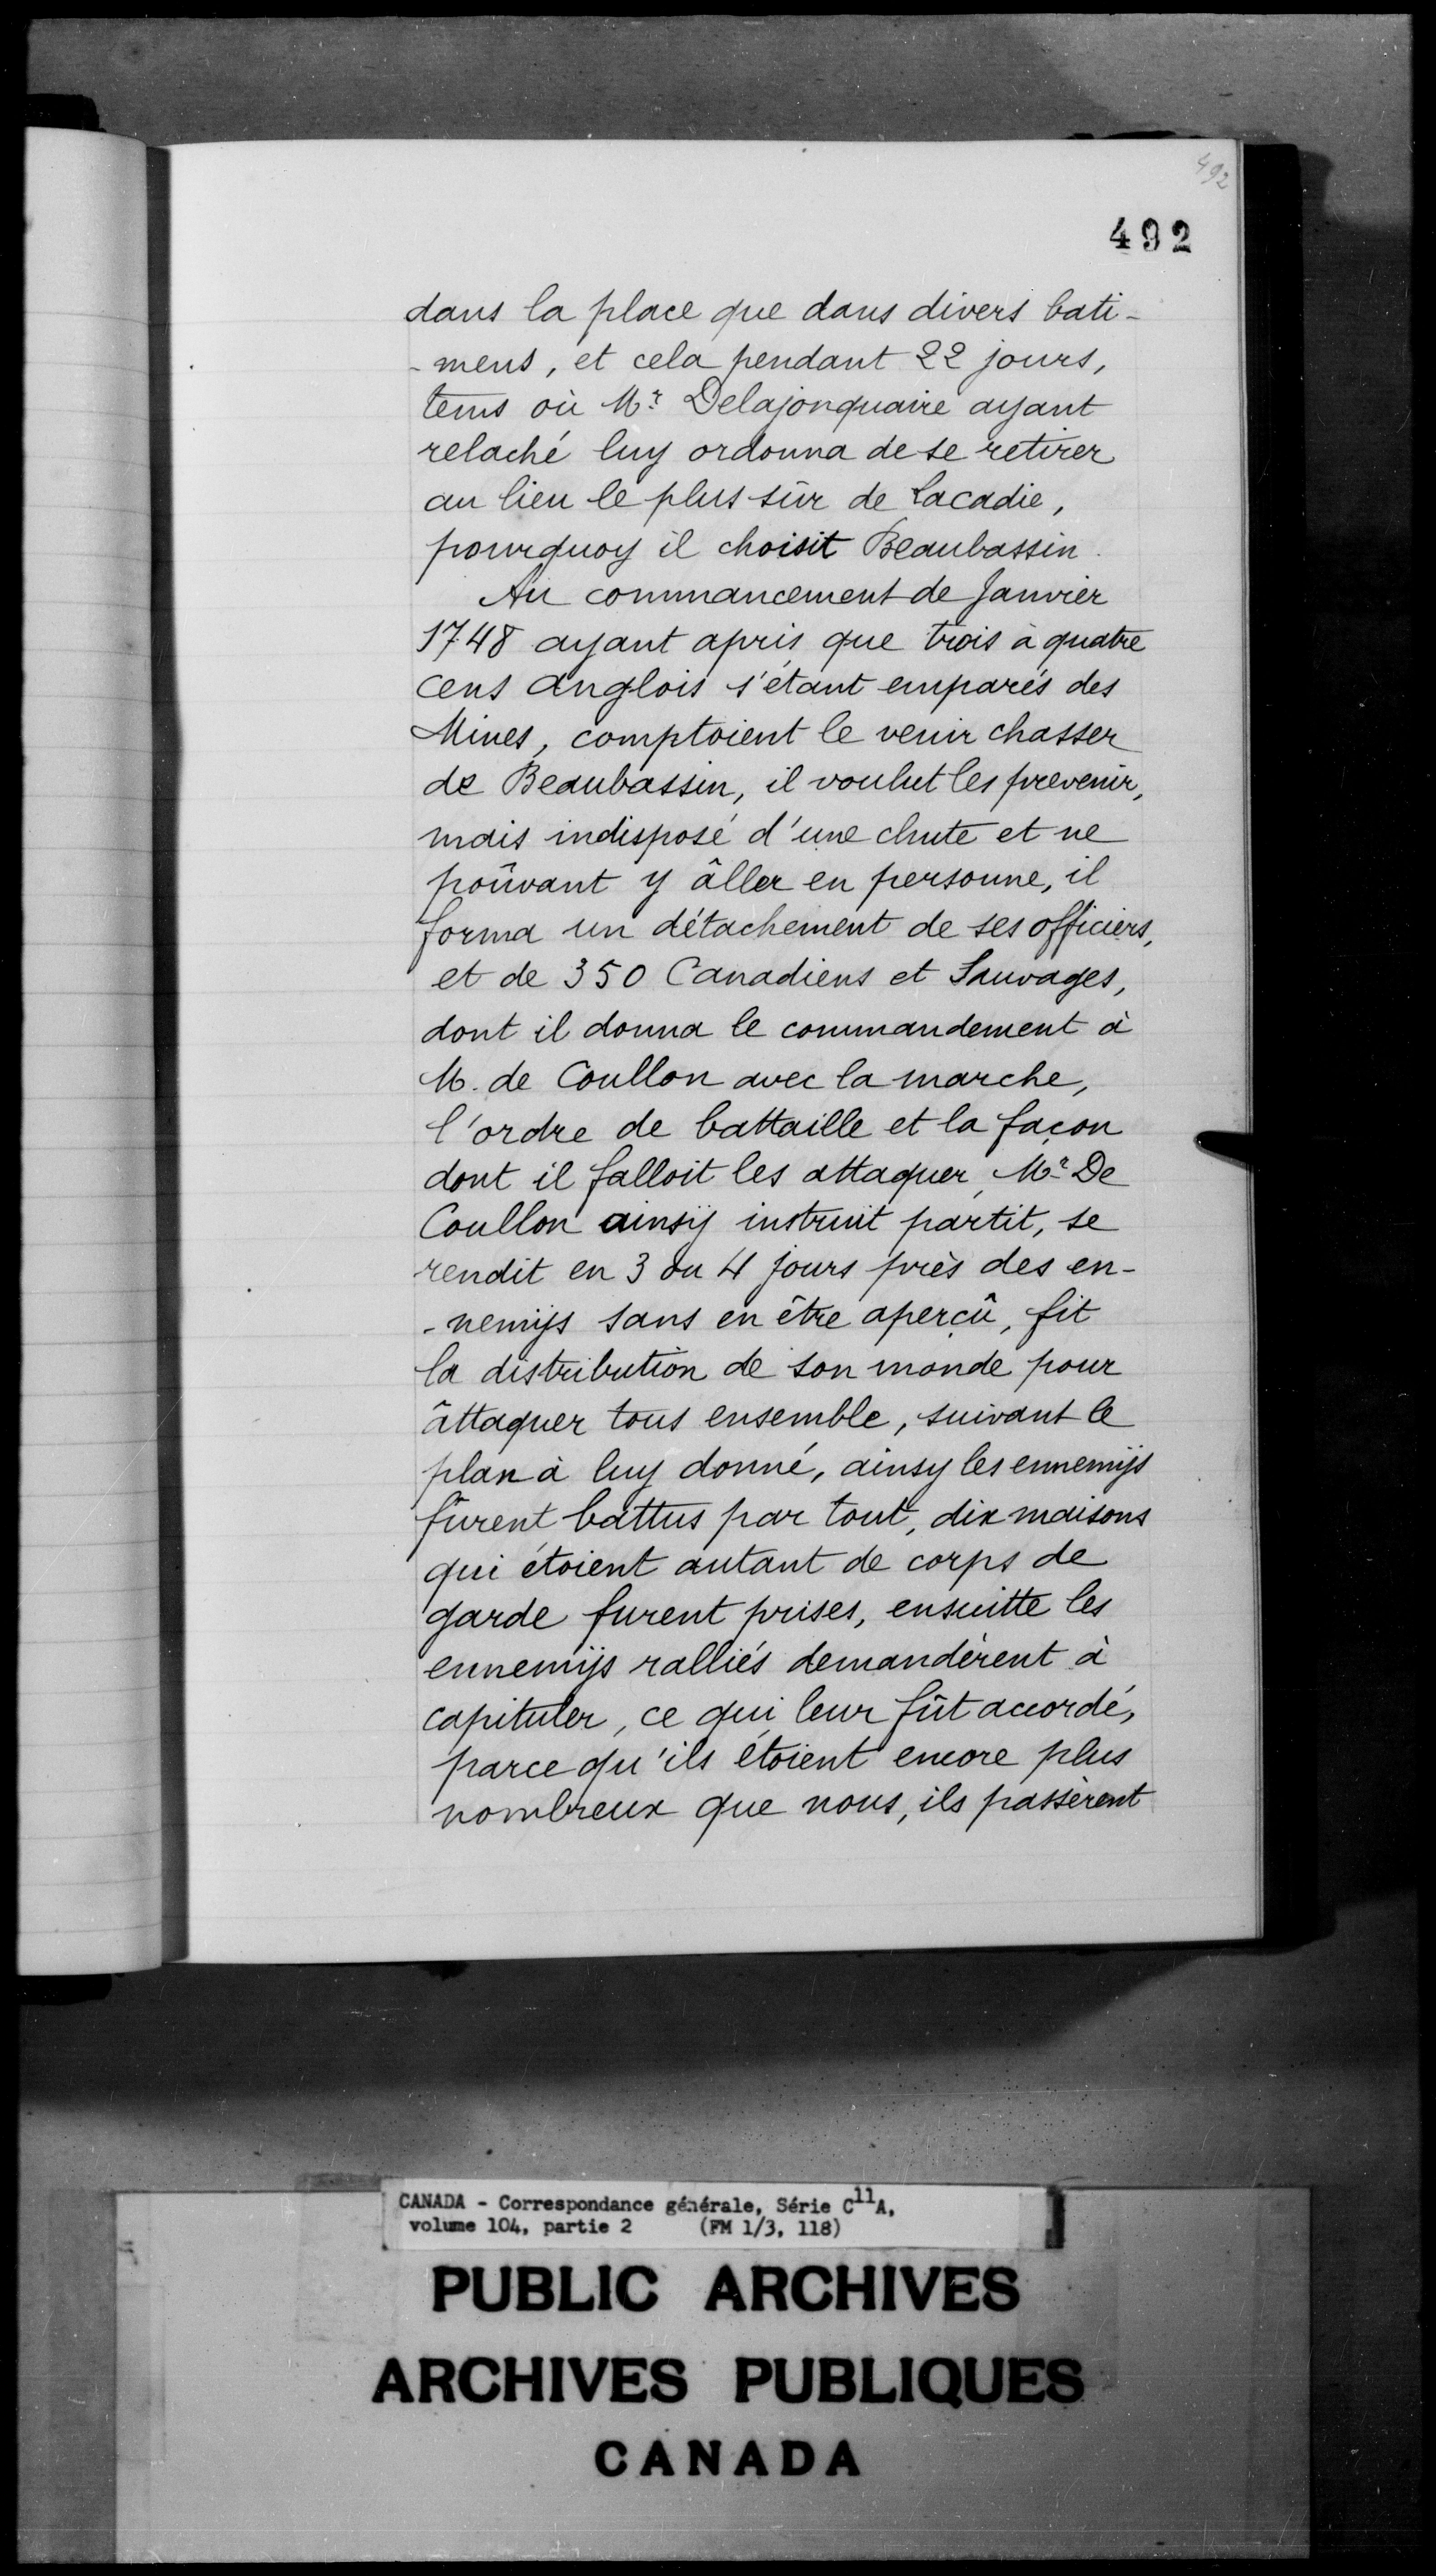 492
492
dans la place que dans divers bati-
-mens, et cela pendant 22 jours,
tems où Mr. Delajonquaire ayant
relaché luy ordonna de se retirer
au lieu le plus sûr de Lacadie,
pourquoy il choisit Beaubassin.
Au commancement de Janvier
1748 ayant apris que trois à quatre
cens anglois s'étant emparés des
Mines, comptoient le venir chasser
de Beaubassin, il voulut les prevenir,
mais indisposé d'une chute et ne
poûvant y âller en personne, il
forma un détachement de ses officiers,
et de 350 Canadiens et Sauvages,
dont il donna le commandement à
M. de Coullon avec la marche,
l'ordre de battaille et la façon
dont il falloit les attaquer, Mr. De
Coullon ainsÿ instruit partit, se
rendit en 3 ou 4 jours près des en-
-nemÿs sans en être aperçû, fit
la distribution de son monde pour
âttaquer tous ensemble, suivant le
plan à luy donné, ainsy les ennemÿs
fûrent battus par tout, dix maisons
qui étoient autant de corps de
garde furent prises, ensuitte les
ennemÿs ralliés demandèrent à
capituler, ce qui leur fût accordé,
parce qu'ils étoient encore plus
nombreux que nous, ils passèrent
CANADA - Correspondance générale, Série C11A,
volume 104, partie 2 (FM 1/3, 118)
PUBLIC ARCHIVES
ARCHIVES PUBLIQUES
CANADA